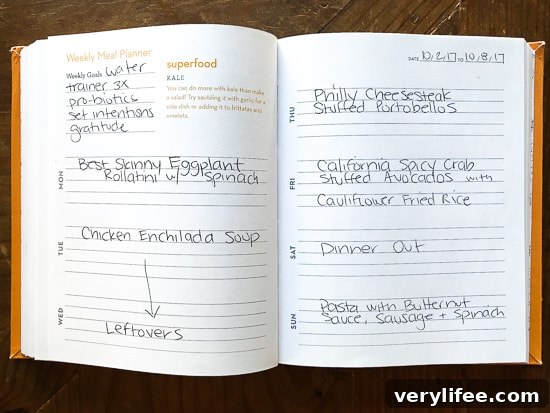 Weekly Meal Planner
Weekly Goals water
trainer 3x
pro-biotics
set intentions
gratitude
superfood
KALE
You can do more with kale than make
a salad! Try sautéing it with garlic for a
side dish or adding it to frittatas and
omelets.
MON
Best Skinny Eggplant
Rollatini w/ Spinach
TUE
Chicken Enchilada Soup
WED
Leftovers
DATE 10/2/17 TO 10/8/17
THU
Philly Cheesesteak
Stuffed Portobellos
FRI
California Spicy Crab
Stuffed Avocados with
Cauliflower Fried Rice
SAT
Dinner Out
SUN
Pasta with Butternut
Sauce, Sausage + Spinach
verylifee.com